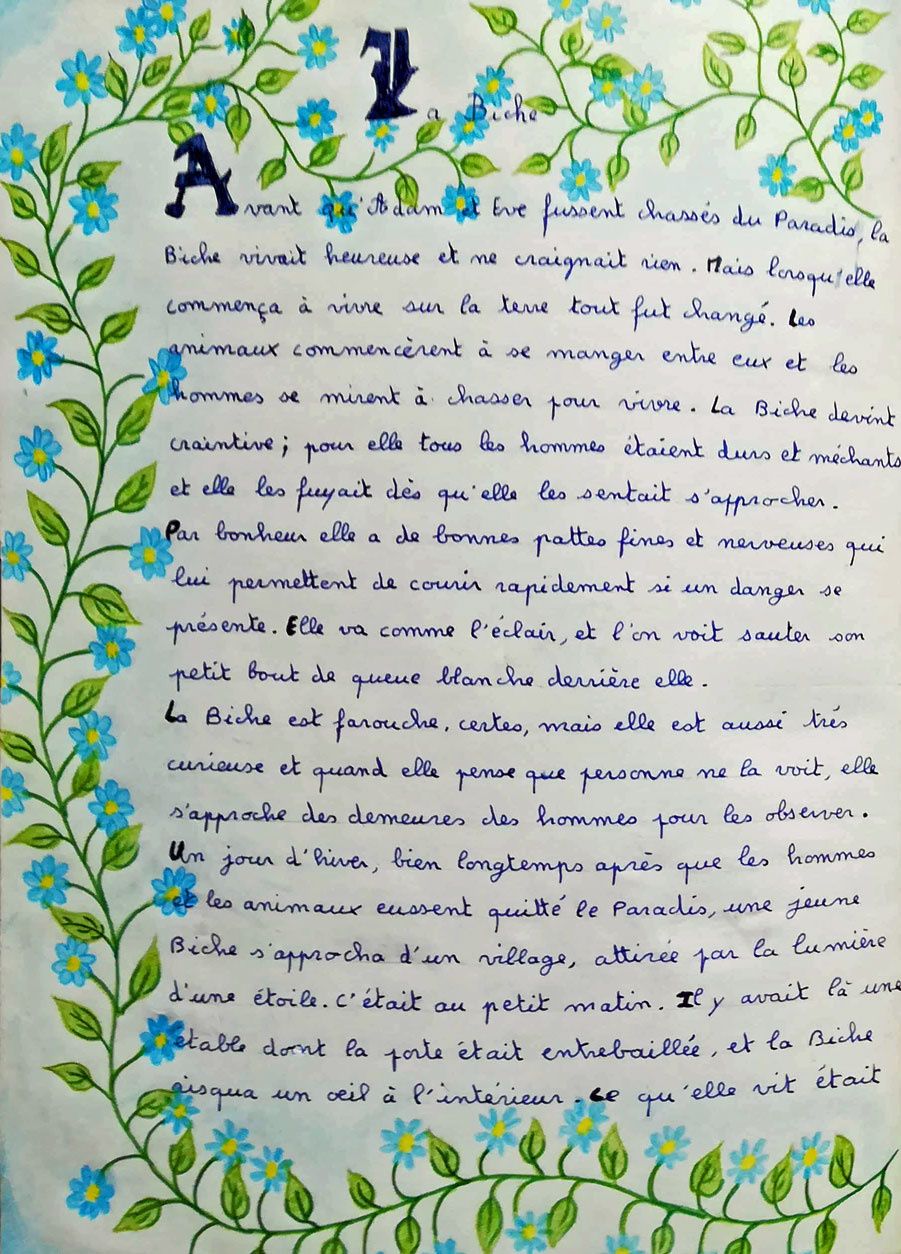 La Biche
Avant qu'Adam et Eve fussent chassés du Paradis, la
Biche vivait heureuse et ne craignait rien. Mais lorsqu'elle
commença à vivre sur la terre tout fut changé. Les
animaux commencèrent à se manger entre eux et les
hommes se mirent à chasser pour vivre. La Biche devint
craintive ; pour elle tous les hommes étaient durs et méchants
et elle les fuyait dès qu'elle les sentait s'approcher.
Par bonheur elle a de bonnes pattes fines et nerveuses qui
lui permettent de courir rapidement si un danger se
présente. Elle va comme l'éclair, et l'on voit sauter son
petit bout de queue blanche derrière elle.
La Biche est farouche, certes, mais elle est aussi trés
curieuse et quand elle pense que personne ne la voit, elle
s'approche des demeures des hommes pour les observer.
Un jour d'hiver, bien longtemps après que les hommes
et les animaux eussent quitté le Paradis, une jeune
Biche s'approcha d'un village, attirée par la lumière
d'une étoile. C'était au petit matin. Il y avait là une
étable dont la porte était entrebaillée, et la Biche
risqua un oeil à l'intérieur. Ce qu'elle vit était